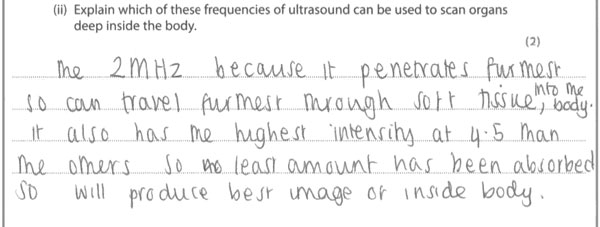 (ii) Explain which of these frequencies of ultrasound can be used to scan organs
deep inside the body.
(2)
The 2MHz because it penetrates furthest
so can travel furthest through soft tissue, into the body.
It also has the highest intensity at 4.5 than
the others so least amount has been absorbed
so will produce best image of inside body.